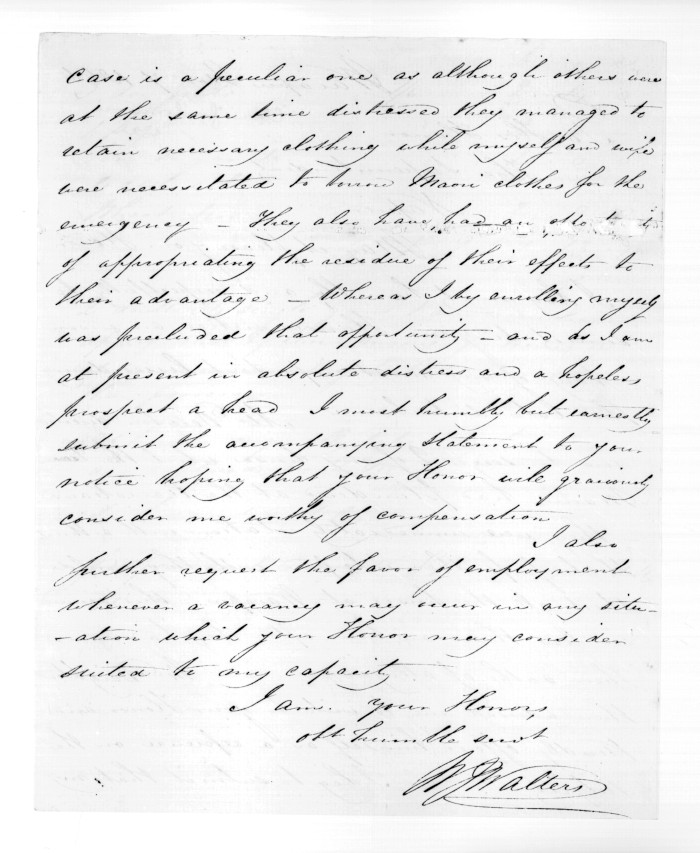 case is a peculiar one as although others were
at the same time distressed they managed to
retain necessary clothing while myself and wife
were necessitated to borrow Maori clothes for the
emergency – They also have had an
of appropriating the residue of their effects to
their advantage – Whereas I by enrolling myself
was precluded that opportunity – and as I am
at present in absolute distress and a hopeless
prospect a head I most humbly but earnestly
submit the accompanying statement to your
notice hoping that your Honor will graciously
consider me worthy of compensation
I also
further request the favor of employment
whenever a vacancy may occur in any situ-
-ation which your Honor may consider
suited to my capacity
I am. your Honors,
obt humble servt
Walters